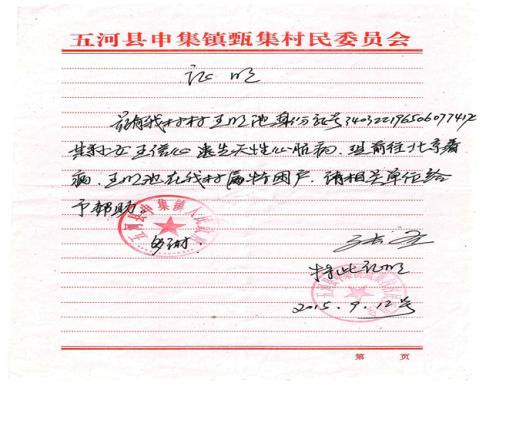 五河县申集镇甄集村民委员会
证明
兹有我村村王明池身份证号
其孙女王信心患先天性心脏病，现前往北京看
病，王明池在我村属特困户，请相关单位给
予帮助。
多谢！
特此证明
2015.9.12号
第 页